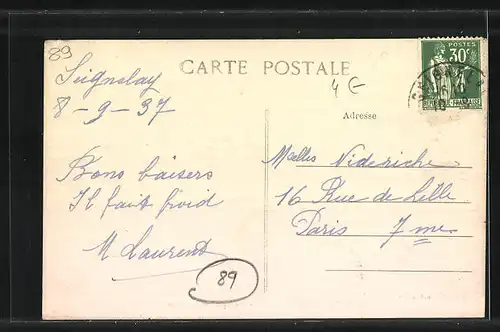 89
Seignelay
8-9-37
Bons baisers
Il fait froid
M Laurent
89
CARTE POSTALE
4 €
Adresse
Melles Videriche
16 Rue de Lille
Paris 7me
POSTES
30c